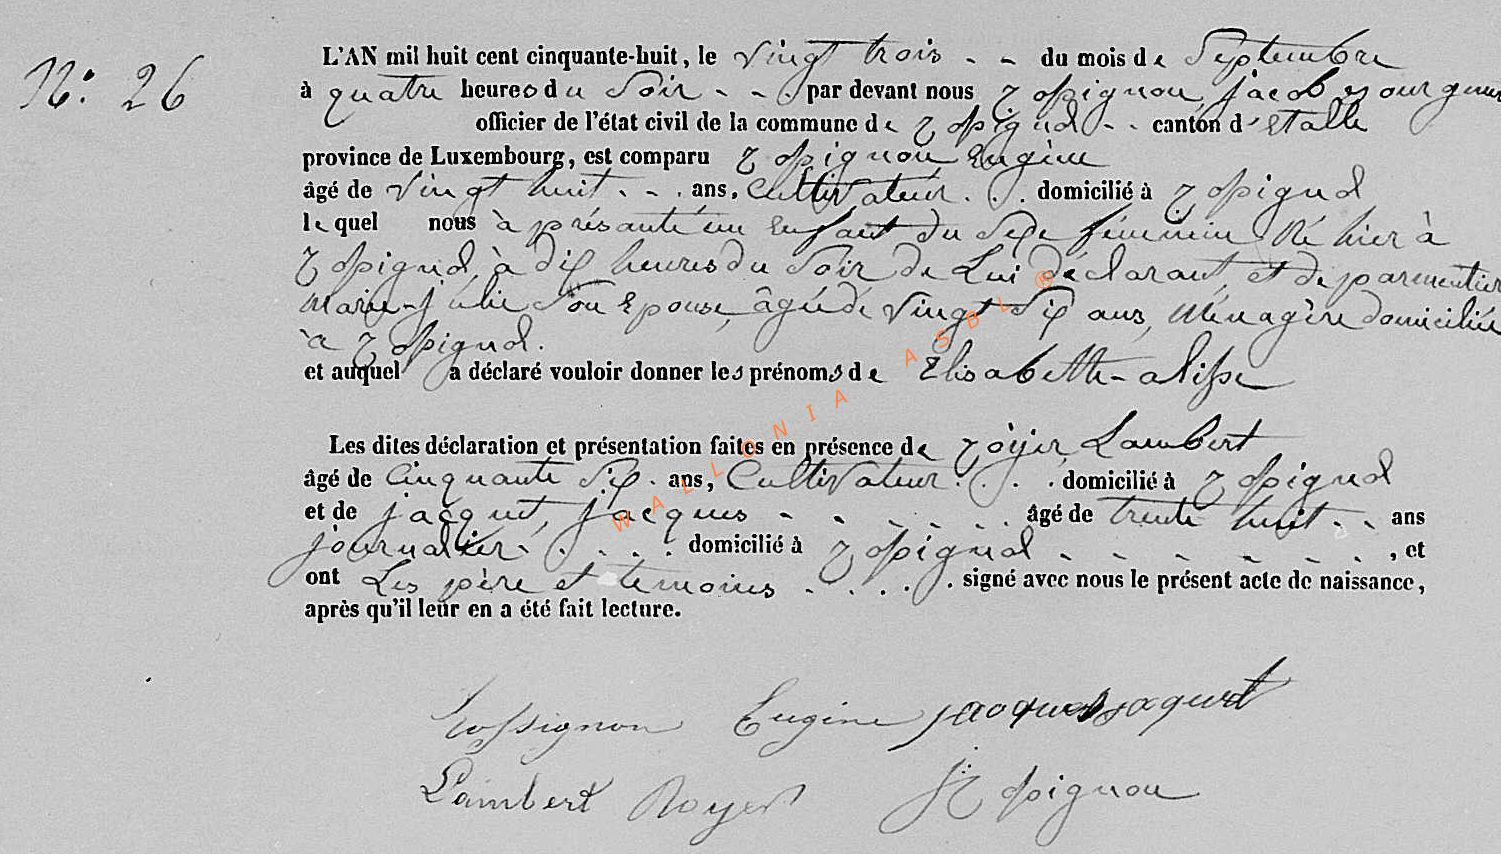 N°: 26
L'AN mil huit cent cinquante-huit, le vingt trois - - du mois de Septembre
à quatre heures du Soir - - . par devant nous Rossignon, jacob
officier de l'état civil de la commune de Rossignol - - canton d'Etalle
province de Luxembourg, est comparu Rossignon Eugène
âgé de vingt huit - - . ans, cultivateur . . . domicilié à Rossignol
lequel nous à présenté un Enfant du Sexe féminin Né hier à
Rossignol, à dix heures du Soir de Lui déclarant, et de parmentier
Marie-julie Son Epouse, âgée de vingt Six ans, Ménagère domiciliée
à Rossignol.
et auquel a déclaré vouloir donner les prénoms de Elisabeth-alisse
Les dites déclaration et présentation faites en présence de Roÿer Lambert
âgé de Cinquante Six . ans, Cultivateur . . . . domicilié à Rossignol
et de jacquet, jacques - - - - - . . âgé de trente huit - - ans
journalier . . . . . domicilié à Rossignol - - - - - . . , et
ont Les père et temoins - . . . . signé avec nous le présent acte de naissance,
après qu'il leur en a été fait lecture.
Rossignon Eugène jacques jaquet
Lambert Royer JRossignon
WALLONIA ASBL ®